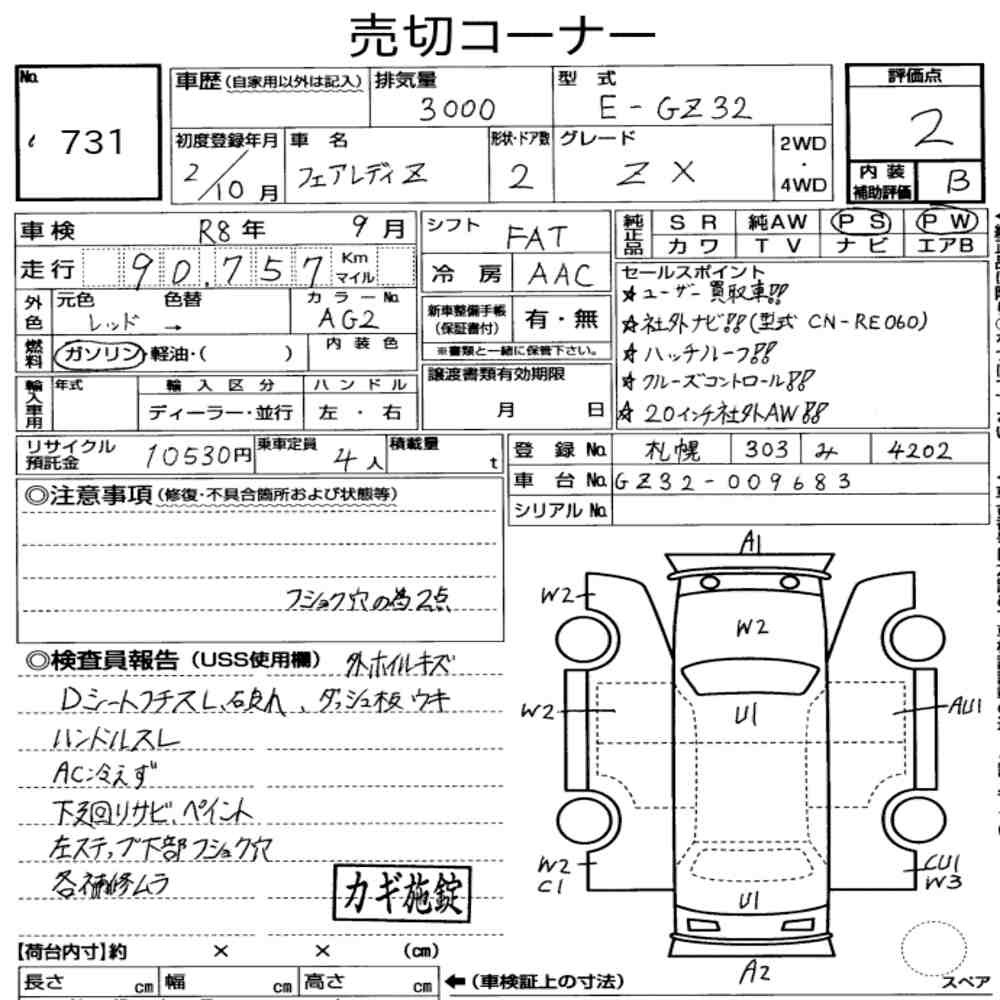 売切コーナー
No. 731
車歴(自家用以外は記入) 排気量 3000 型式 E-GZ32 評価点 2
初度登録年月 2/10月 車名 フェアレディZ 形状・ドア数 2 グレード ZX 2WD・4WD 内装補助評価 B
車検 R8年 9月 シフト FAT 純正品 SR 純AW PS PW
走行 90,757 Km マイル 冷房 AAC カワ TV ナビ エアB
外色 元色 レッド → 色替 カラーNo. AG2
新車整備手帳(保証書付) 有・無
※書類と一緒に保管下さい。
燃料 ガソリン・軽油・( ) 内装色
輸入車用 年式 輸入区分 ディーラー・並行 ハンドル 左・右
譲渡書類有効期限 月 日
セールスポイント
☆ユーザー買取車!!
☆社外ナビ!!(型式 CN-RE060)
☆ハッチルーフ!!
☆クルーズコントロール!!
☆20インチ社外AW!!
リサイクル預託金 10530円 乗車定員 4人 積載量 t
登録No. 札幌 303 み 4202
車台No. GZ32-009683
シリアルNo.
◎注意事項(修復・不具合箇所および状態等)
フショク穴の為2点
◎検査員報告(USS使用欄) 外ホイルキズ
Dシートフチスレ、ダッシュ板ウキ
ハンドルスレ
AC冷えず
下廻りサビ、ペイント
左ステップ下部フショク穴
各補修ムラ
カギ施錠
A1
W2
W2
W2 U1 AU1
W2 C1
CU1 W3
U1
A2
スペア
【荷台内寸】約 × × (cm)
長さ cm 幅 cm 高さ cm ←(車検証上の寸法)